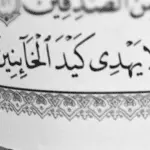 ٱلصَّٰدِقِينَ
لَا يَهْدِى كَيْدَ ٱلْخَآئِنِينَ